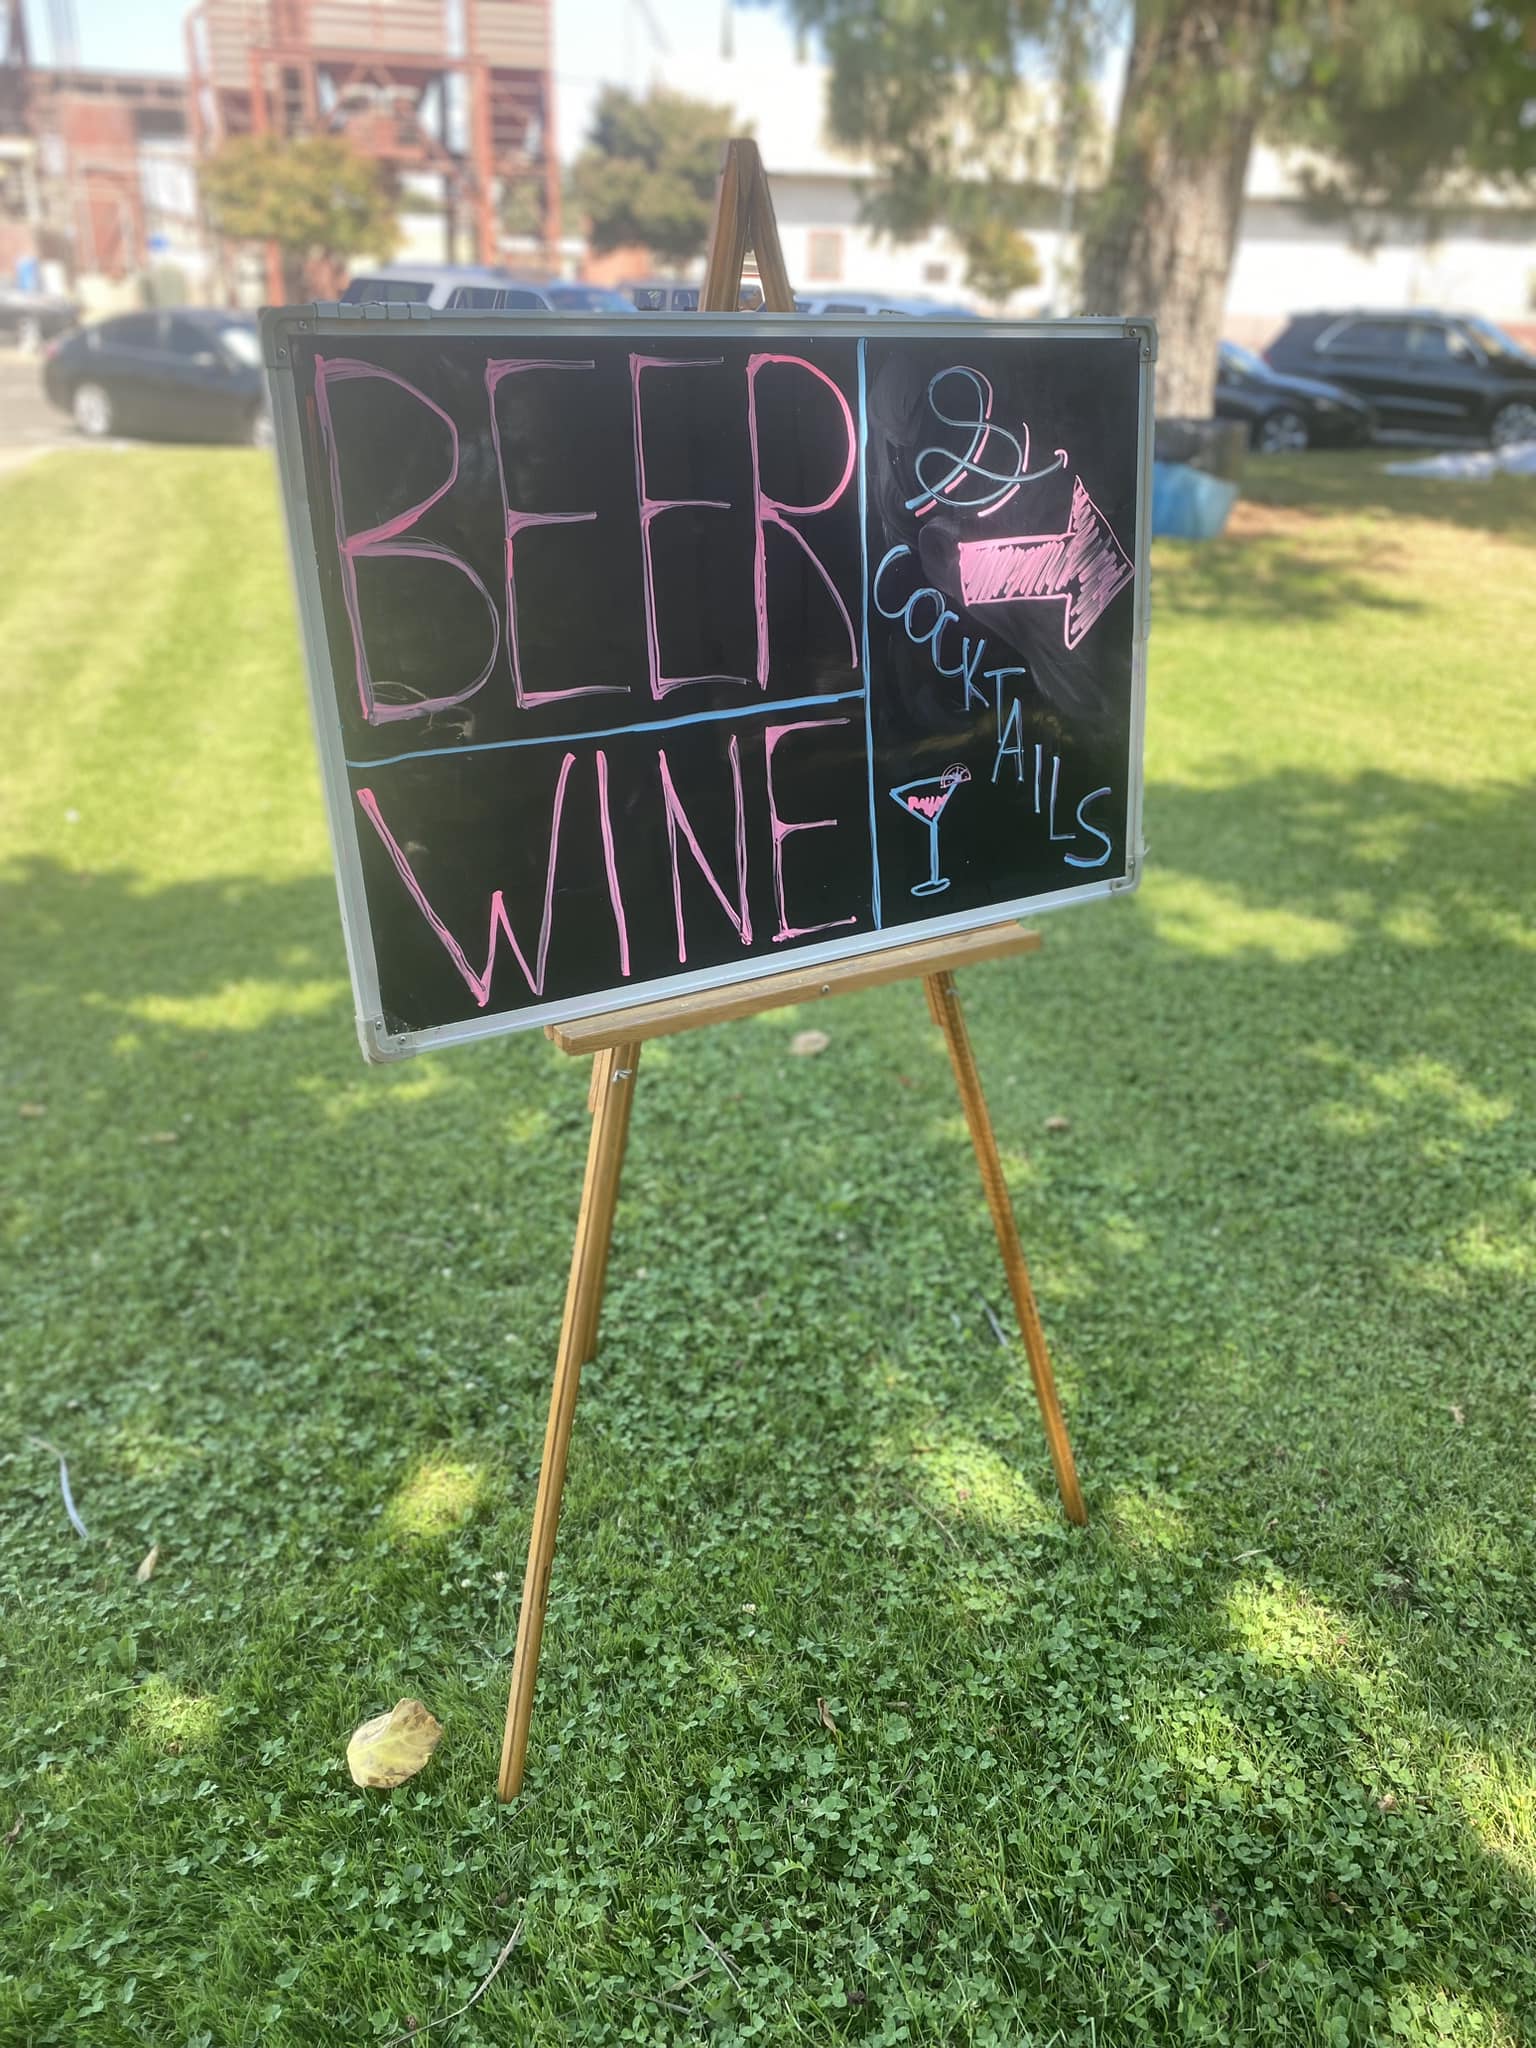 BEER
WINE
&
COCKTAILS